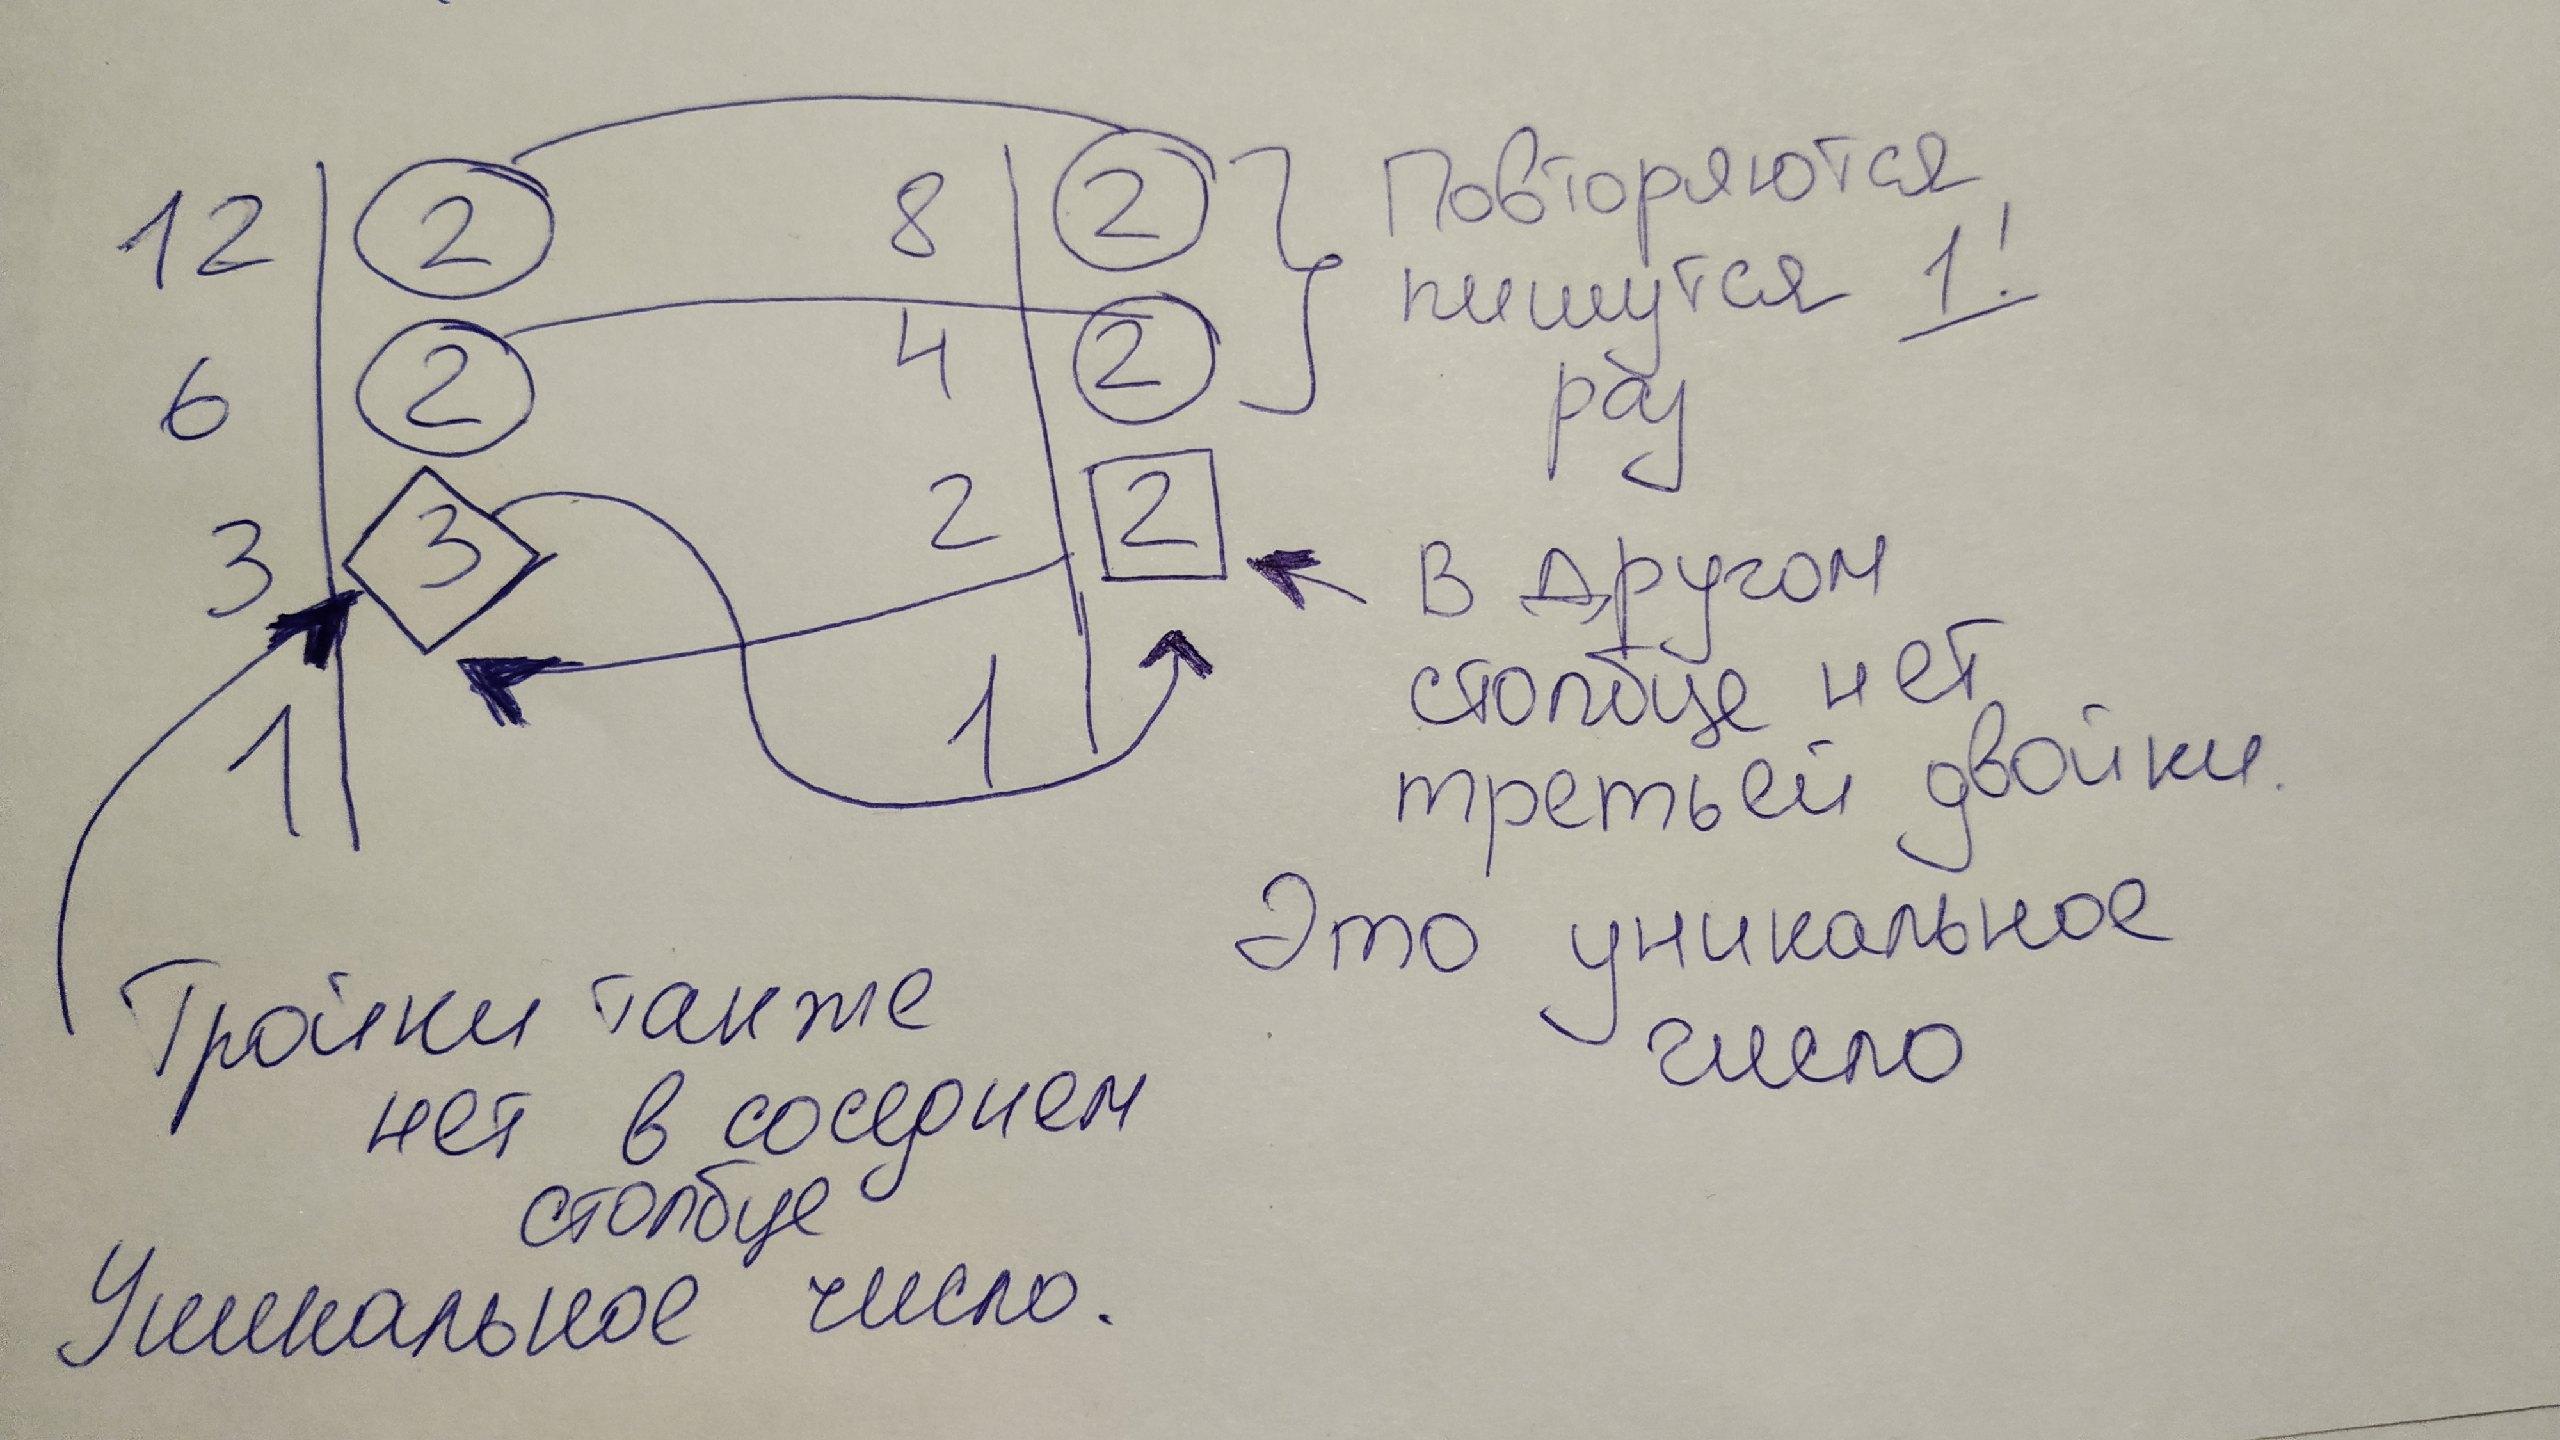 12 2 8 2
6 2 4 2
3 3 2 2
1 1
Повторяются
пишутся 1!
раз
В другом
столбце нет
третьей двойки.
Это уникальное
число
Тройки также
нет в соседнем
столбце
Уникальное число.